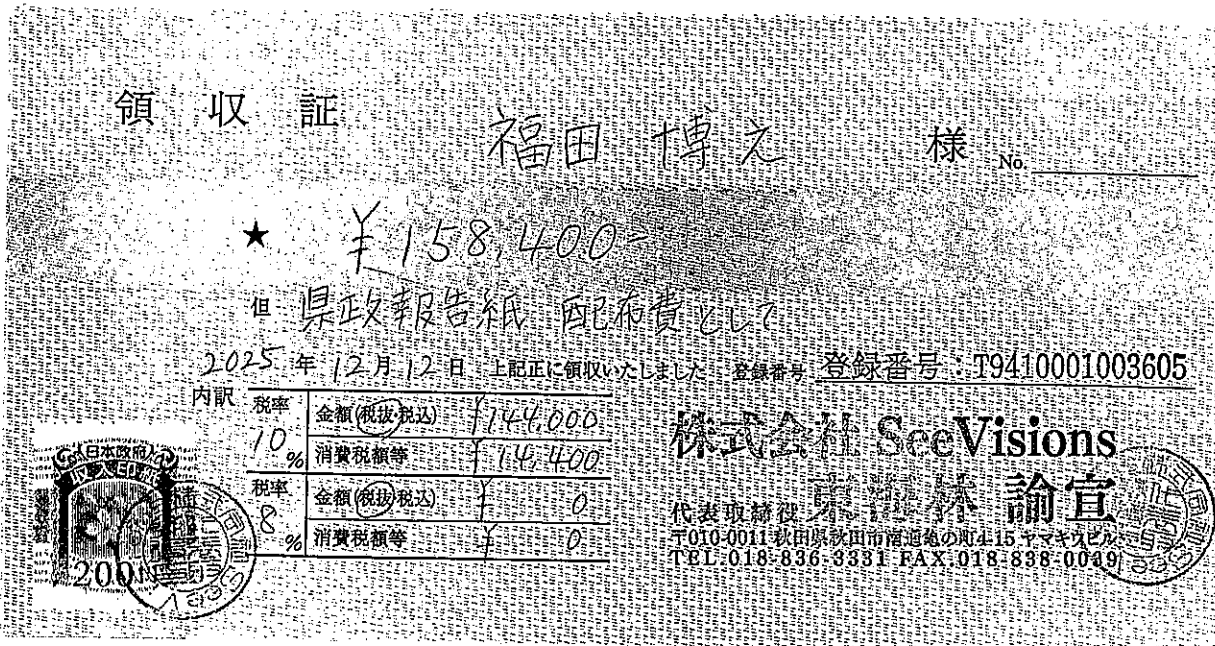 領収証
福田 博之 様 No.
★ ¥158,400-
但 県政報告紙 配布費として
2025年12月12日 上記正に領収いたしました 登録番号 登録番号:T9410001003605
内訳
税率 10% 金額(税抜・税込) ¥144,000
消費税額等 ¥14,400
税率 8% 金額(税抜・税込) ¥0
消費税額等 ¥0
株式会社 SeeVisions
代表取締役 東海林 諭宣
〒010-0011 秋田県秋田市南通亀の町4-15 ヤマキウビル
TEL.018-836-3331 FAX.018-838-0039
日本政府
200